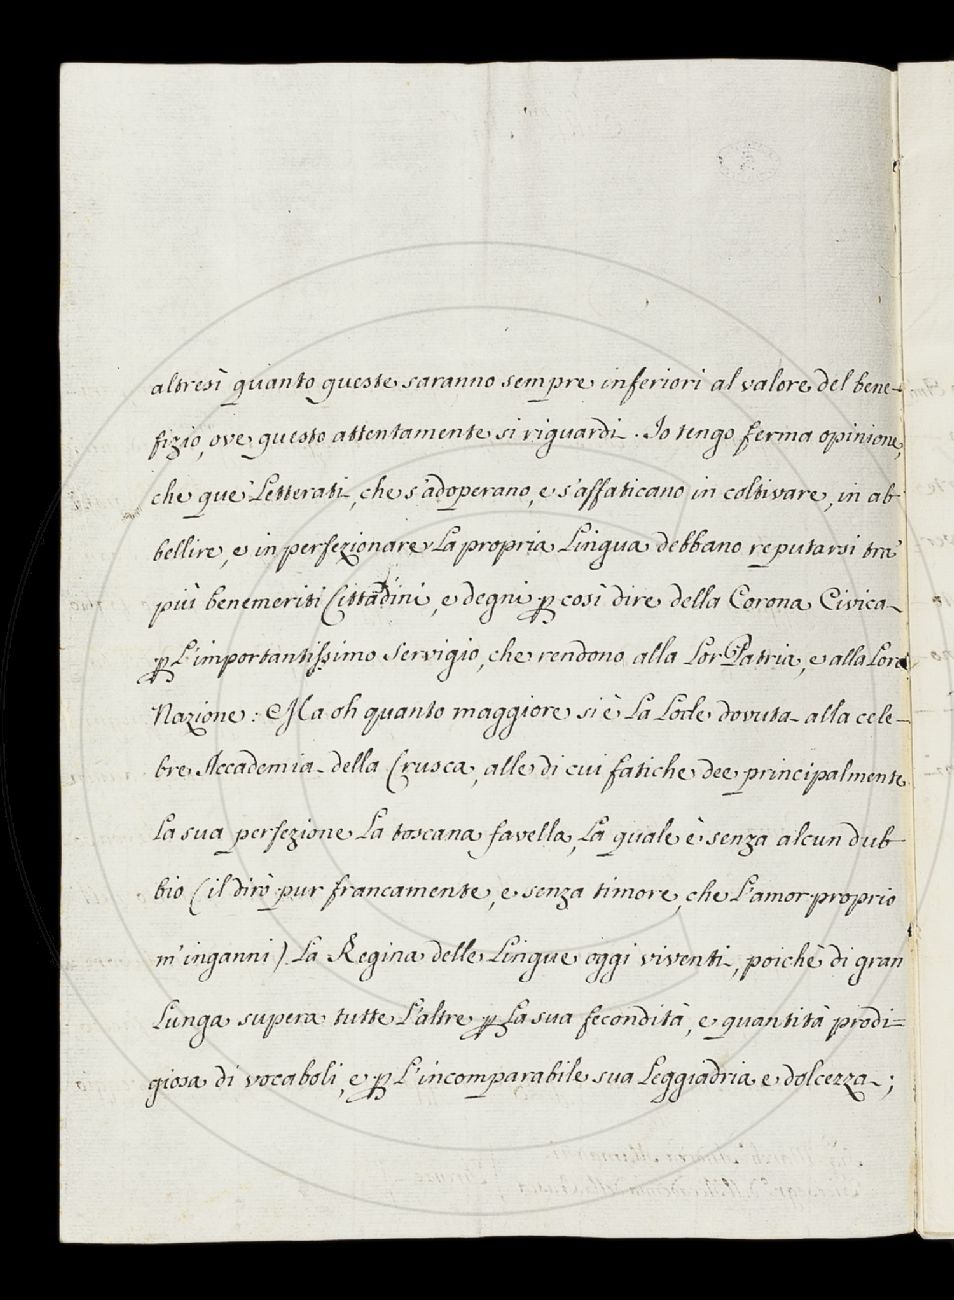 altresì quanto queste saranno sempre inferiori al valore del bene-
fizio, ove questo attentamente si riguardi. Io tengo ferma opinione,
che que' Letterati, che s'adoperano, e s'affaticano in coltivare, in ab-
bellire, e in perfezionare La propria Lingua debbano reputarsi tra'
più benemeriti Cittadini, e degni p così dire della Corona Civica
p L'importantissimo servigio, che rendono alla Lor Patria, e alla Loro
Nazione: Ma oh quanto maggiore si è La Lode dovuta alla cele-
bre Accademia della Crusca, alle di cui fatiche dee principalmente
La sua perfezione La toscana favella, La quale è senza alcun dub-
bio (il dirò pur francamente, e senza timore, che L'amor proprio
m'inganni) La Regina delle Lingue oggi viventi, poichè di gran
Lunga supera tutte L'altre p La sua fecondità, e quantità prodi=
giosa di vocaboli, e p L'incomparabile sua Leggiadria e dolcezza;